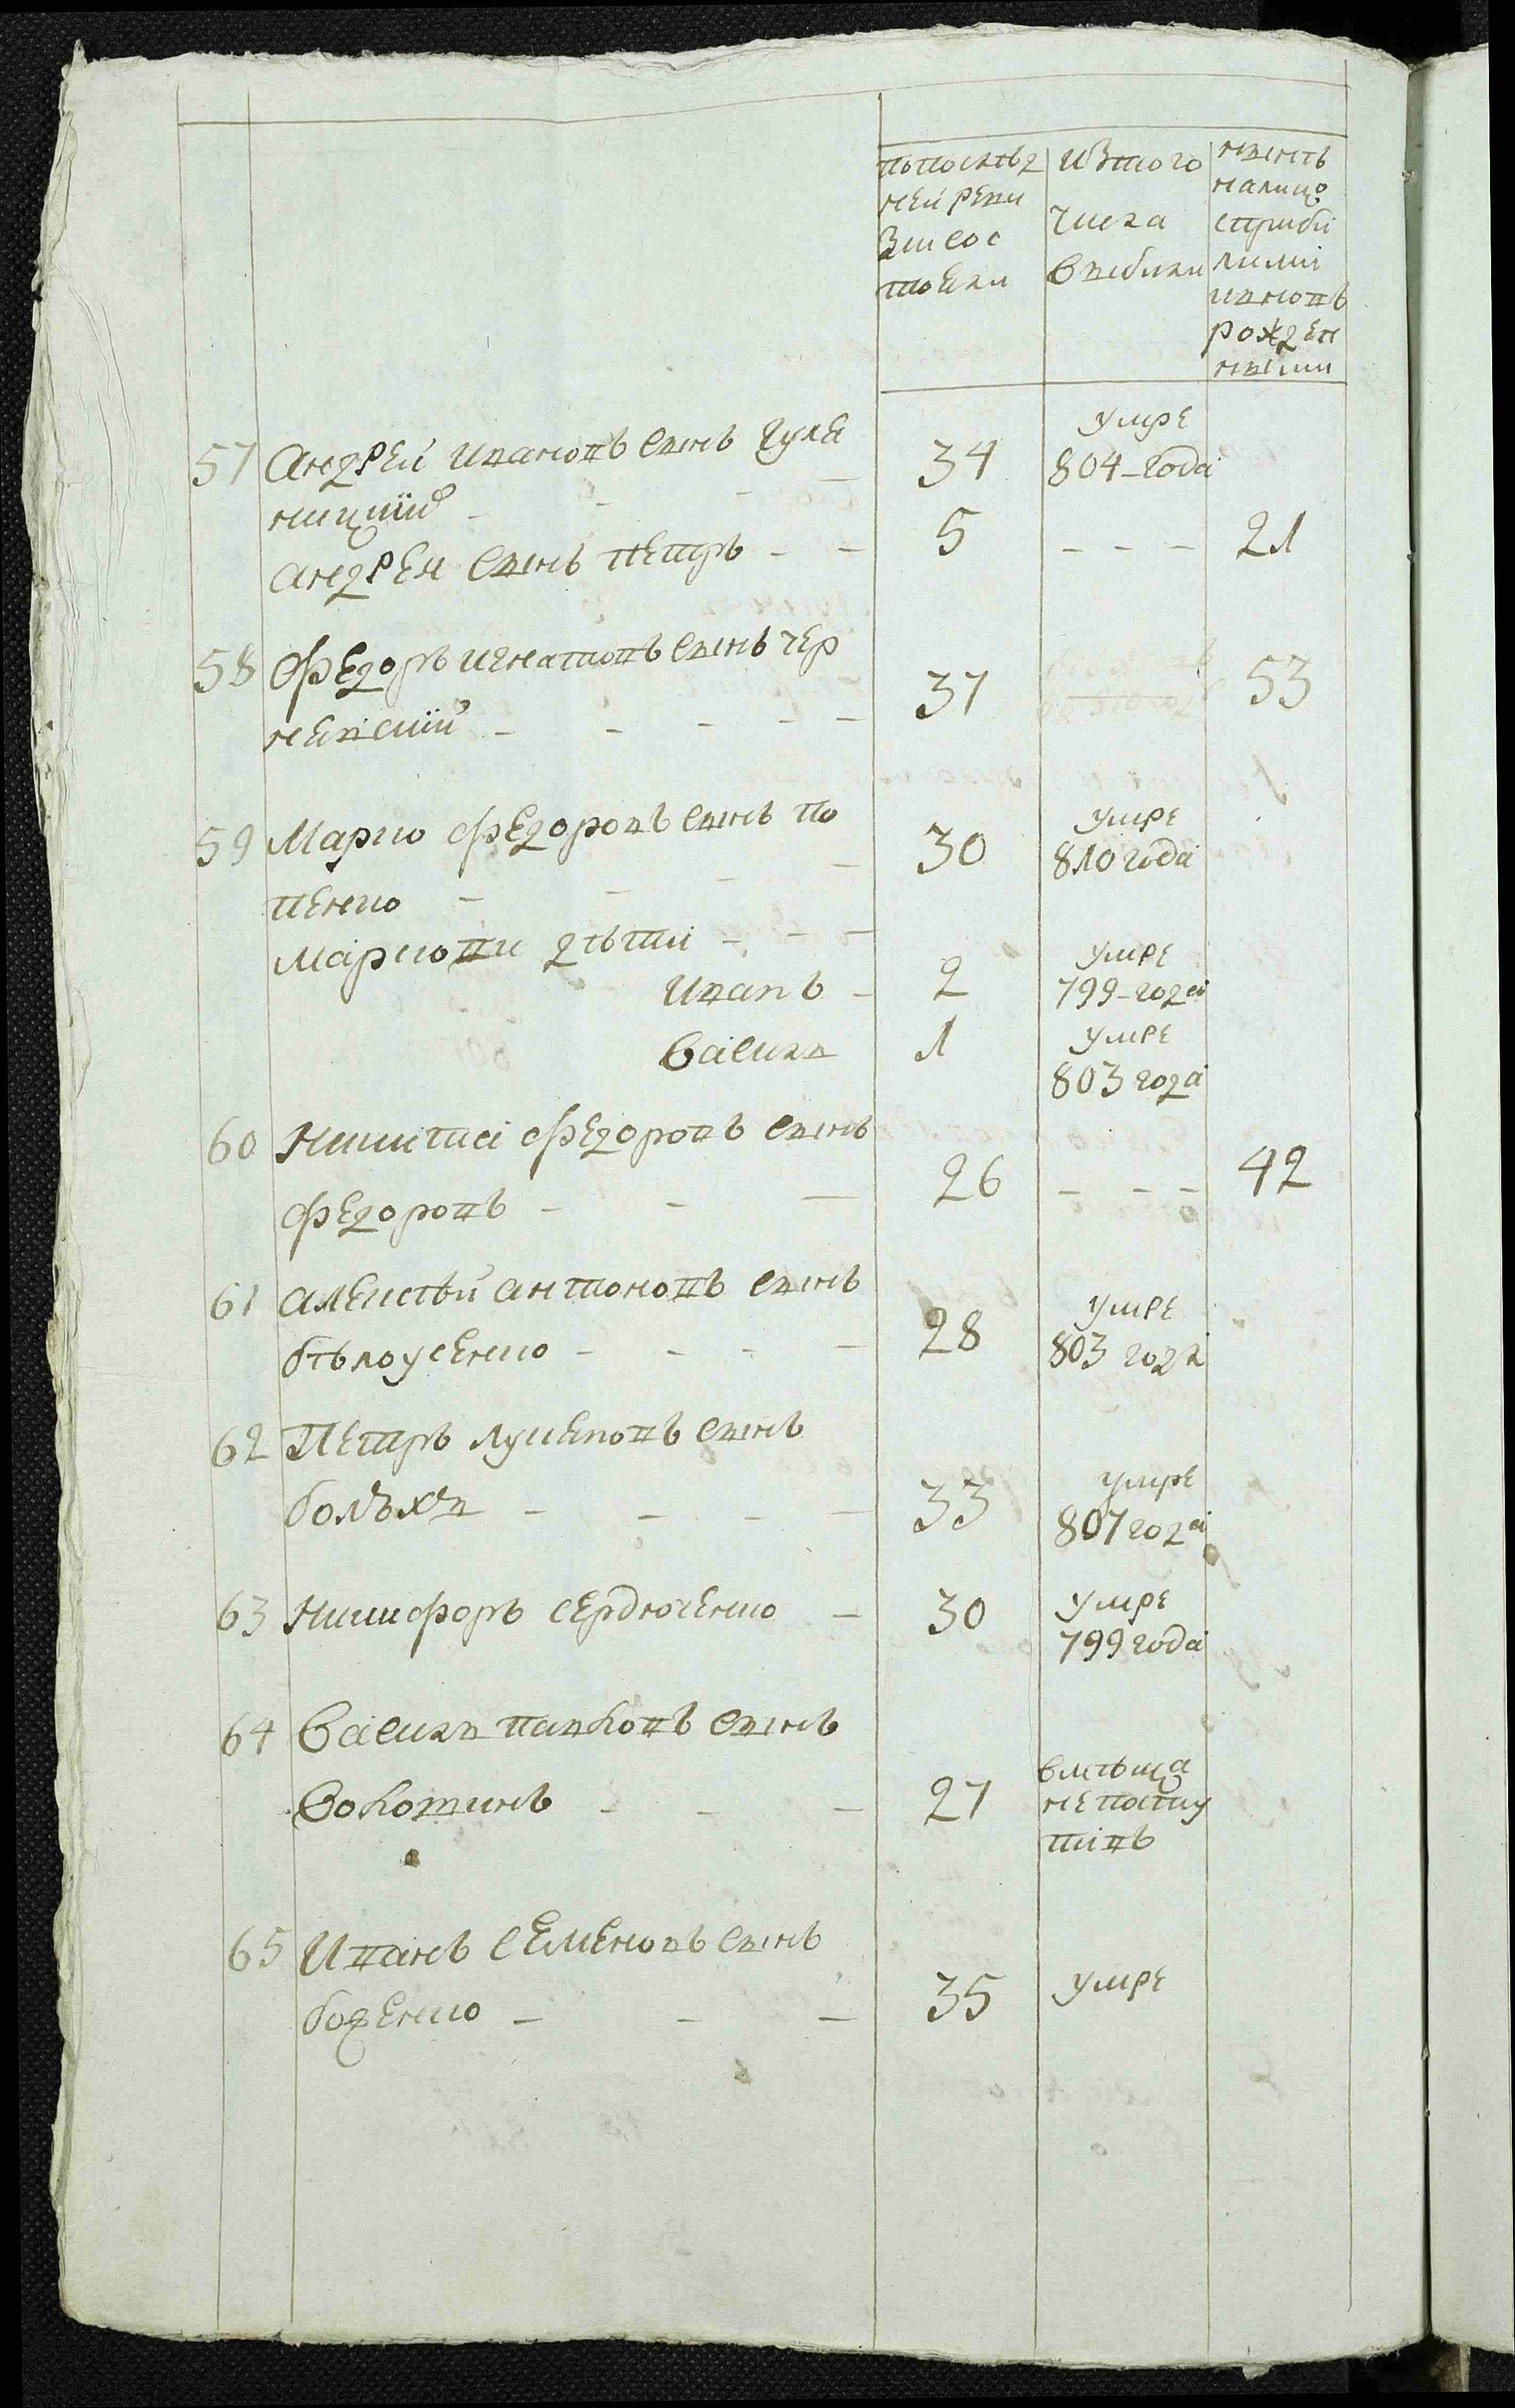 попослѣд
ней реви
зіи сос
тояли
изтого
числа
выбыли
нынѣ
налицо
сприбы
лыми
ивновь
рожден
ными
57 Андрей ивановъ сынъ гуля
ницкій - - - - 34 умре 804-года
Андрея сынъ петръ - - 5 - - - 21
58 Федоръ игнатовъ сынъ чер
нявскій - - - - - 37 53
59 Марко федоровъ сынъ по
пенко - - - - 30 умре 810 года
марковы дѣти - - -
иванъ - 2 умре 799-года
василь 1 умре 803 года
60 Никита федоровъ сынъ
федоровъ - - - 26 - - - 42
61 алексѣй антоновъ сынъ
бѣлоусенко - - - - 28 умре 803 года
62 Петръ лукяновъ сынъ
- - - - 33 умре 807 года
63 Никифоръ сердюченко - 30 умре 799 года
64 Василь павловъ сынъ
волошинъ - - - 27 вмѣща непосту пивъ
65 Иванъ семеновъ сынъ
боженко - - - 35 умре